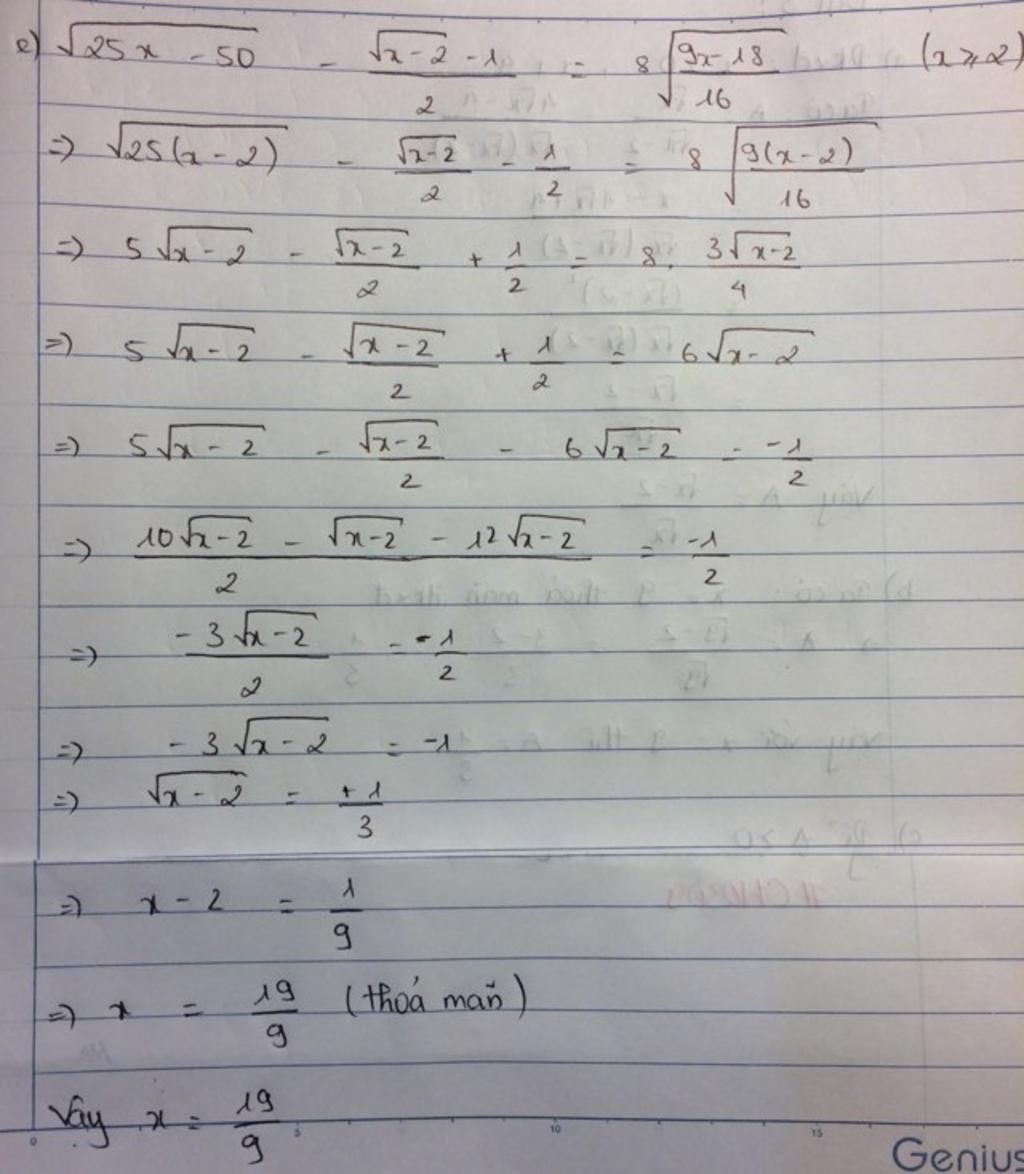 e) √(25x - 50) - (√(x-2) - 1)/2 = 8√((9x-18)/16) (x ⩾ 2)
=> √(25(x-2)) - √(x-2)/2 - 1/2 = 8√(9(x-2)/16)
=> 5√(x-2) - √(x-2)/2 + 1/2 = 8. 3√(x-2)/4
=> 5√(x-2) - √(x-2)/2 + 1/2 = 6√(x-2)
=> 5√(x-2) - √(x-2)/2 - 6√(x-2) = -1/2
=> (10√(x-2) - √(x-2) - 12√(x-2))/2 = -1/2
=> -3√(x-2)/2 = -1/2
=> -3√(x-2) = -1
=> √(x-2) = +1/3
=> x - 2 = 1/9
=> x = 19/9 (thoả mãn)
Vậy x = 19/9
0 5 10 15
Genius